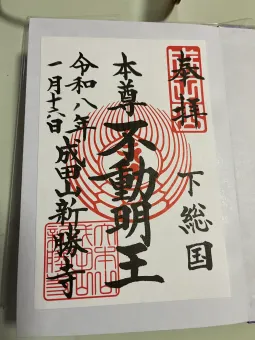 奉拝
下総国
本尊不動明王
成田山新勝寺
令和八年
一月十六日